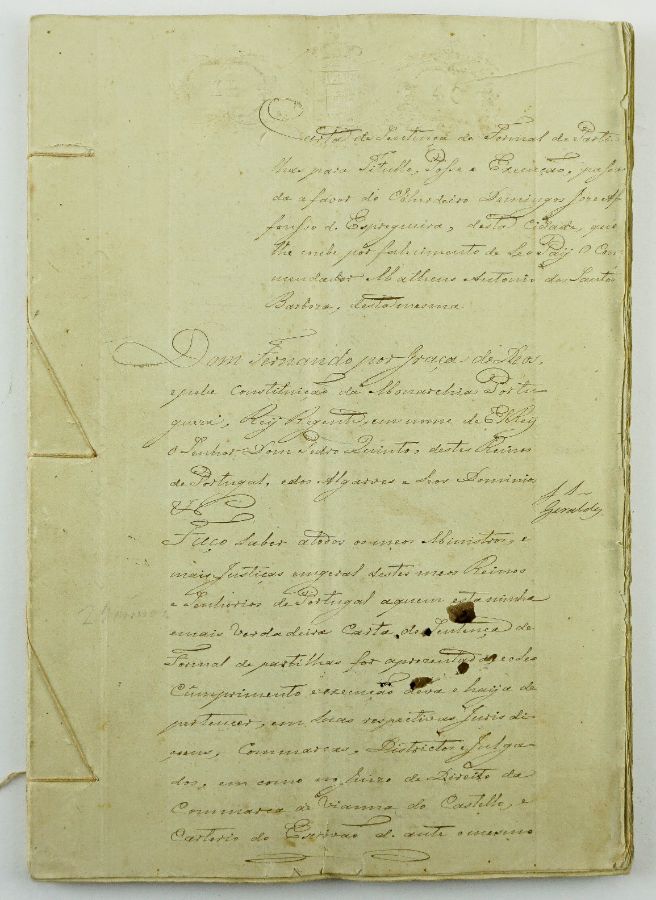 Carta de Sentença de Formal de Parti-
lhas para Titullo, Posse e Execução, passa-
da a favor do Coherdeiro Domingos Jose Af-
fonso d. Espregueira, desta Cidade, que
lhe coube por falecimento de Seo Pay O Com-
mendador Matheus Antonio dos Santos
Barboza, desta mesma.
Dom Fernando por Graça de Deos,
e pella Constituição da Monarchia Portu-
gueza, Rey Regente, em nome de El Rey
O Senhor Dom Pedro Quinto, destes Reinos
de Portugal, e dos Algarves e Seos Dominios
&c
Geraldes
Faço saber a todos os meos Ministros, e
mais Justiças em geral destes meos Reinos
e Senhorios de Portugal a quem esta minha
e mais verdadeira Carta de Sentença de
Formal de partilhas for apresentada e o seo
Cumprimento e execução deva e haja de
pertencer, em suas respectivas Jurisdi-
çoens, Commarcas, Districtos e Julga-
dos, em como no Juizo de Direito da
Commarca de Vianna do Castello, e
Cartorio do Escrivão d. ante o mesmo